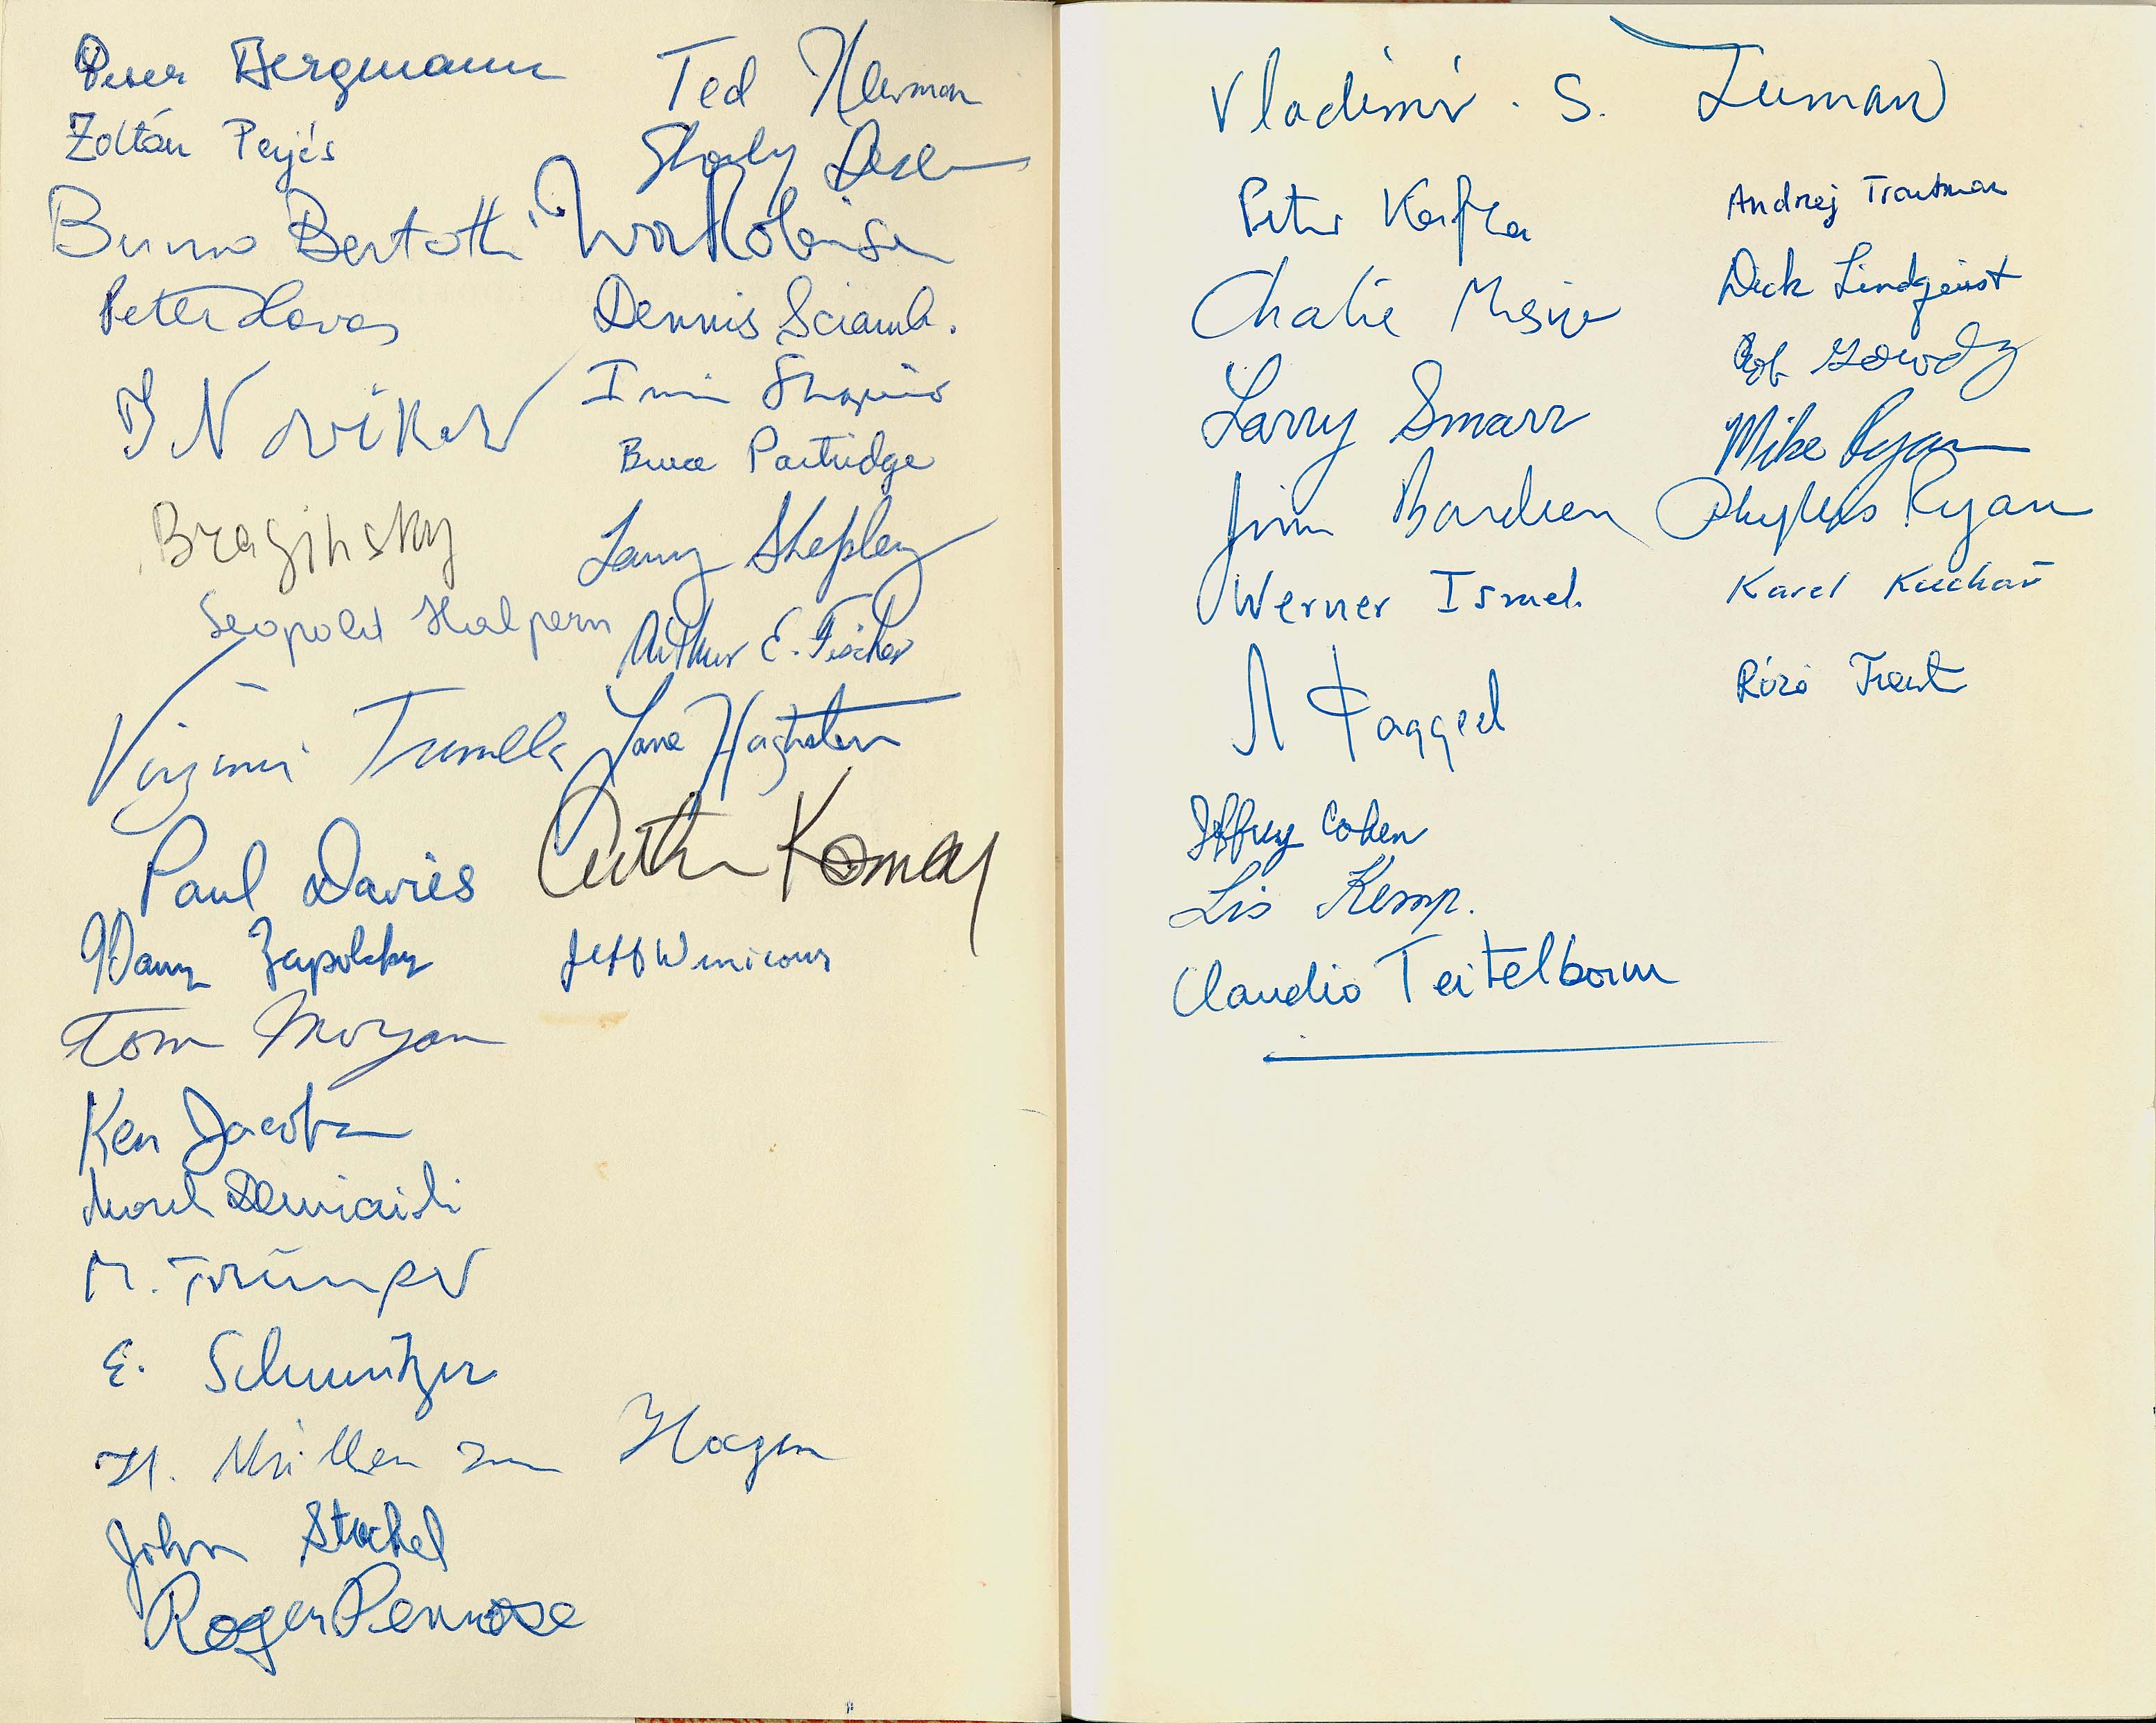 Peter Bergmann
Zoltán Perjés
Bruno Bertotti
Peter Havas
I Novikov
Braginsky
Leopold Halpern
Virginia Trimble
Paul Davies
Harry Zapolsky
Tom Morgan
Ken Jacobs
Marek Demiański
M. Trümper
E. Schmutzer
H. Müller zum Hagen
John Stachel
Roger Penrose
Ted Newman
Stanly Deser
Ivor Robinson
Dennis Sciama.
Irwin Shapiro
Bruce Partridge
Larry Shepley
Arthur E. Fischer
Jane
Arthur Komar
Jeff Winicour
Vladimir. S.
Peter Kafka
Charlie Misner
Larry Smarr
Jim Bardeen
Werner Israel.
Λ Φαγγεd
Jeffrey Cohen
Lis Kemp.
Claudio Teitelboim
Andrzej Trautman
Dick Lindquist
Bob Gowdy
Mike Ryan
Phyllis Ryan
Karel Kuchař
Róża Traut